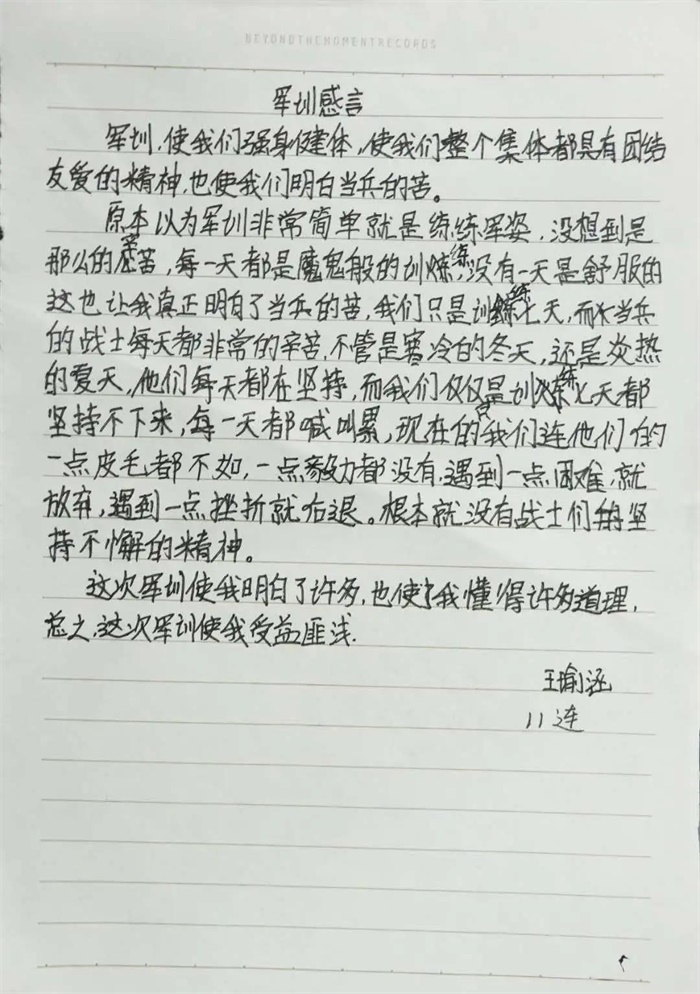 BEYONDTHEMOMENTRECORDS
军训感言
军训,使我们强身健体,使我们整个集体都具有团结
友爱的精神,也使我们明白当兵的苦。
原本以为军训非常简单就是练练军姿,没想到是
那么的辛苦,每一天都是魔鬼般的训练,没有一天是舒服的
这也让我真正明白了当兵的苦,我们只是训练七天,而当兵
的战士每天都非常的辛苦,不管是寒冷的冬天,还是炎热
的夏天,他们每天都在坚持,而我们仅仅是训练七天都
坚持不下来,每一天都喊叫累,现在的我们连他们的
一点皮毛都不如,一点毅力都没有,遇到一点困难,就
放弃,遇到一点挫折就后退。根本就没有战士们的坚
持不懈的精神。
这次军训使我明白了许多,也使我懂得许多道理,
总之,这次军训使我受益匪浅.
王瑜涵
11连